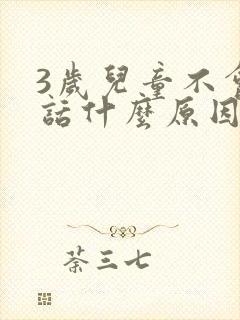 3歲兒童不會
話什麼原因
荼三七